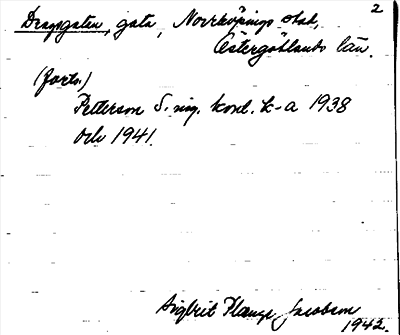 2
Dragsgatan, gata, Norrköpings stad,
Östergötlands län.
(forts.)
Petterson S. sig. konl. k-a 1938
och 1941.
Sigbrit Plange Jacobson
1942.